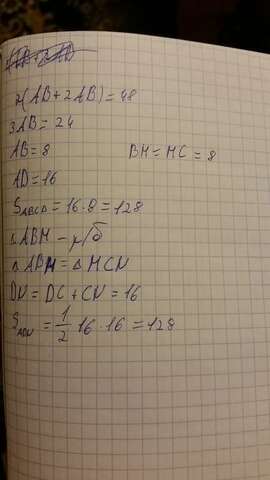 2(AB+2AB)=48
3AB=24
AB=8 BM=MC=8
AD=16
S_ABCD=16·8=128
△ABM - р/б
△ABM=△MCN
DN=DC+CN=16
S_ADN=1/2 16·16=128